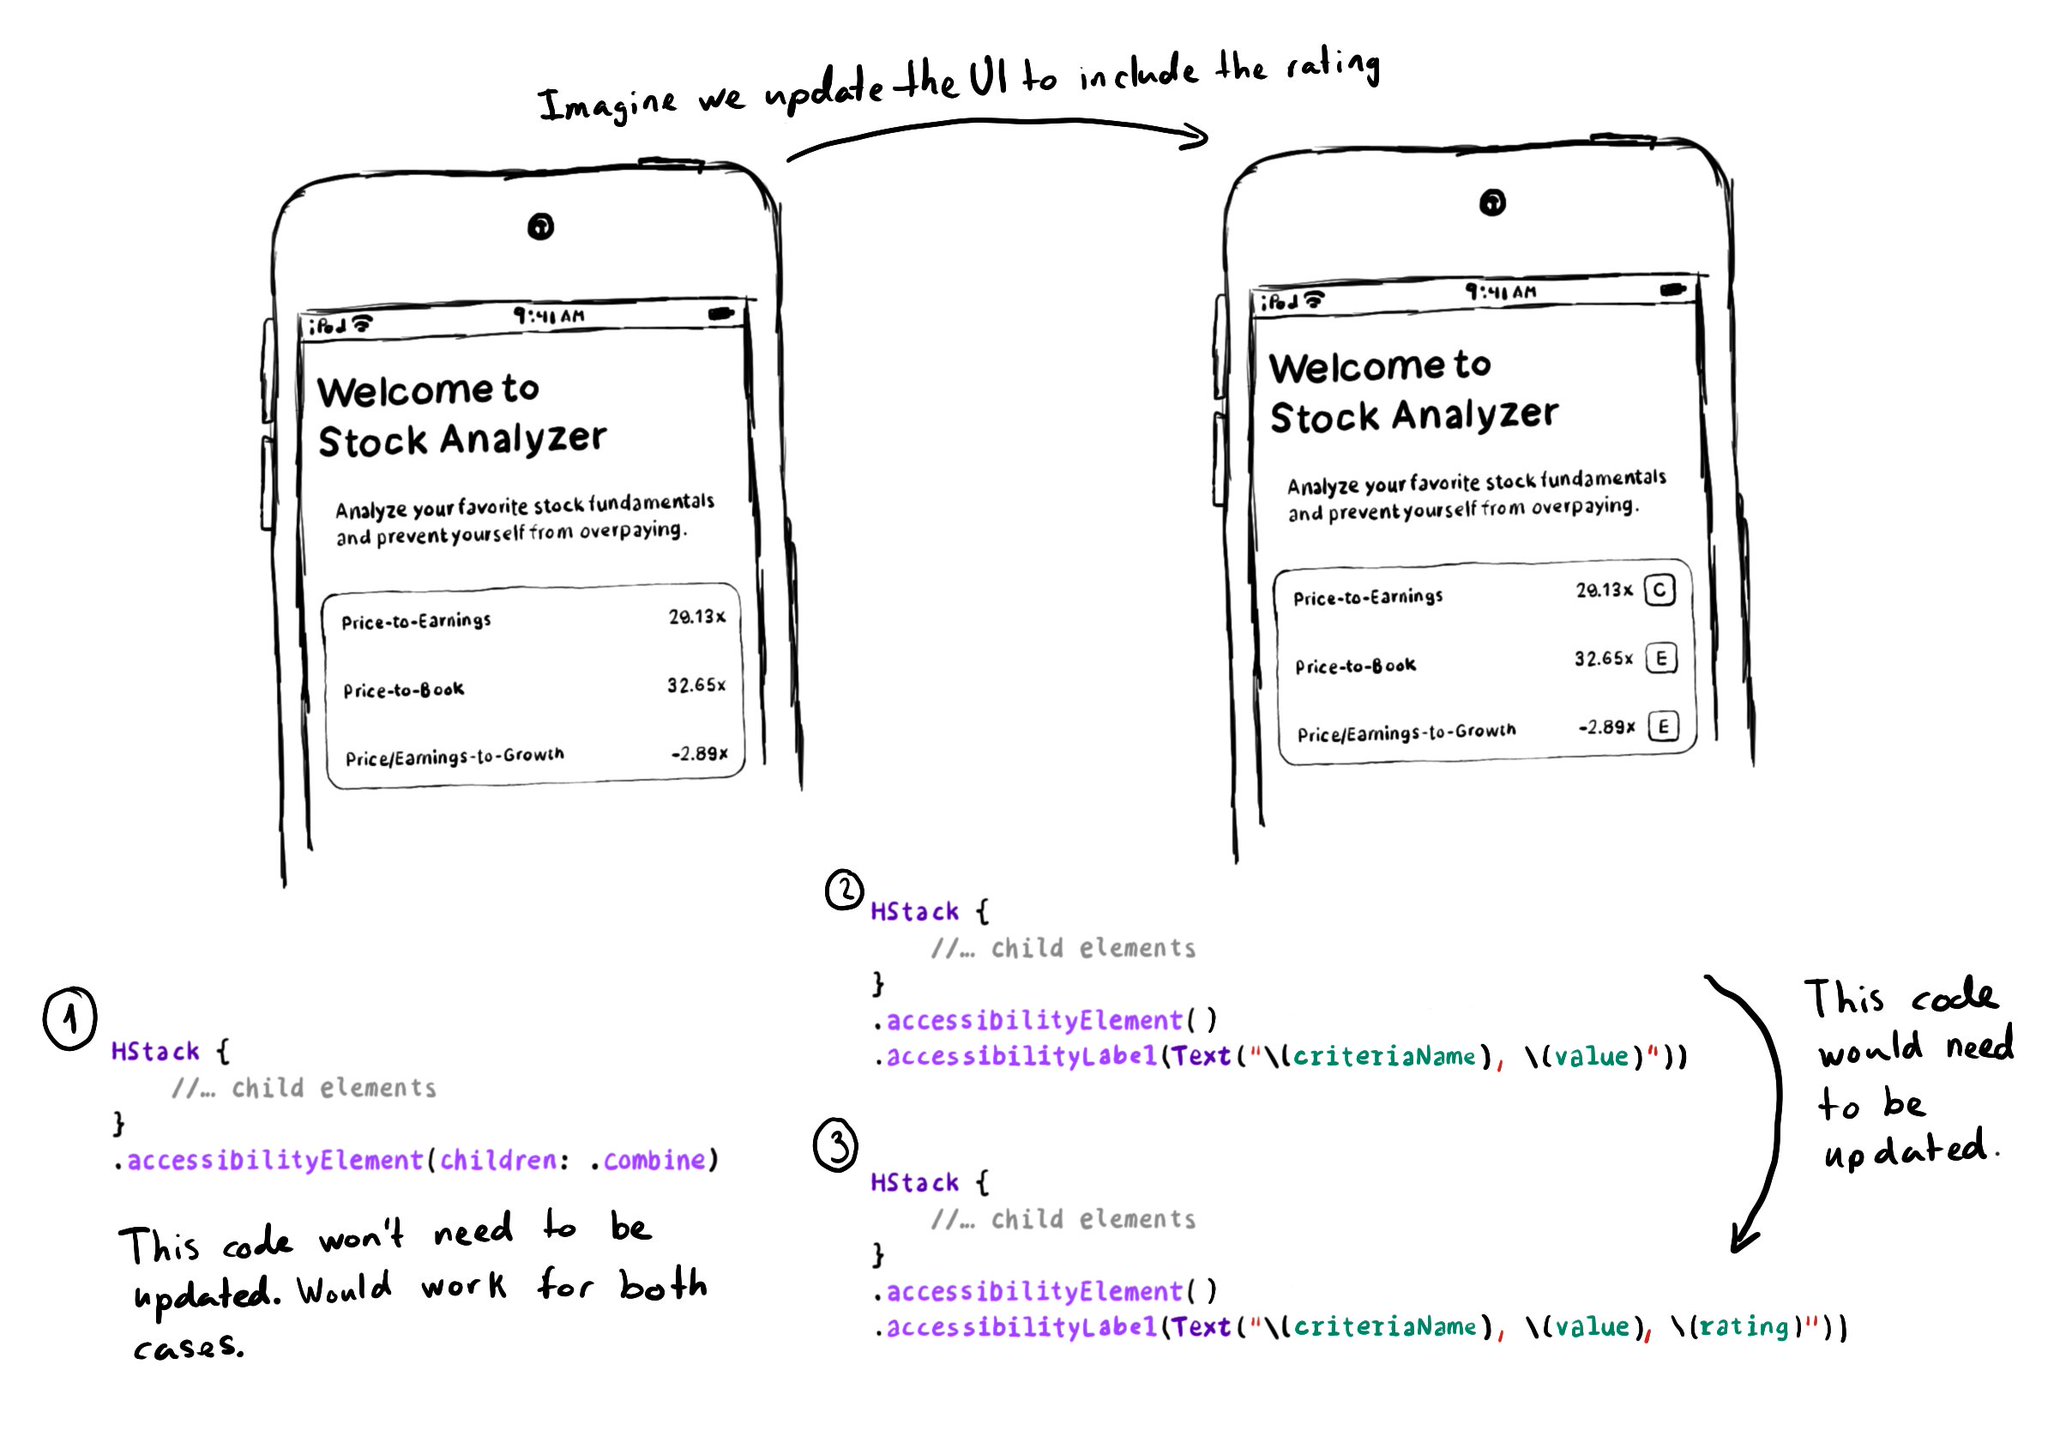 Imagine we update the UI to include the rating
iPod 9:41 AM
Welcome to
Stock Analyzer
Analyze your favorite stock fundamentals
and prevent yourself from overpaying.
Price-to-Earnings 29.13x
Price-to-Book 32.65x
Price/Earnings-to-Growth -2.89x
iPod 9:41 AM
Welcome to
Stock Analyzer
Analyze your favorite stock fundamentals
and prevent yourself from overpaying.
Price-to-Earnings 29.13x C
Price-to-Book 32.65x E
Price/Earnings-to-Growth -2.89x E
1
HStack {
//… child elements
}
.accessibilityElement(children: .combine)
This code won't need to be
updated. Would work for both
cases.
2
HStack {
//… child elements
}
.accessibilityElement()
.accessibilityLabel(Text("\(criteriaName), \(value)"))
3
HStack {
//… child elements
}
.accessibilityElement()
.accessibilityLabel(Text("\(criteriaName), \(value), \(rating)"))
This code
would need
to be
updated.